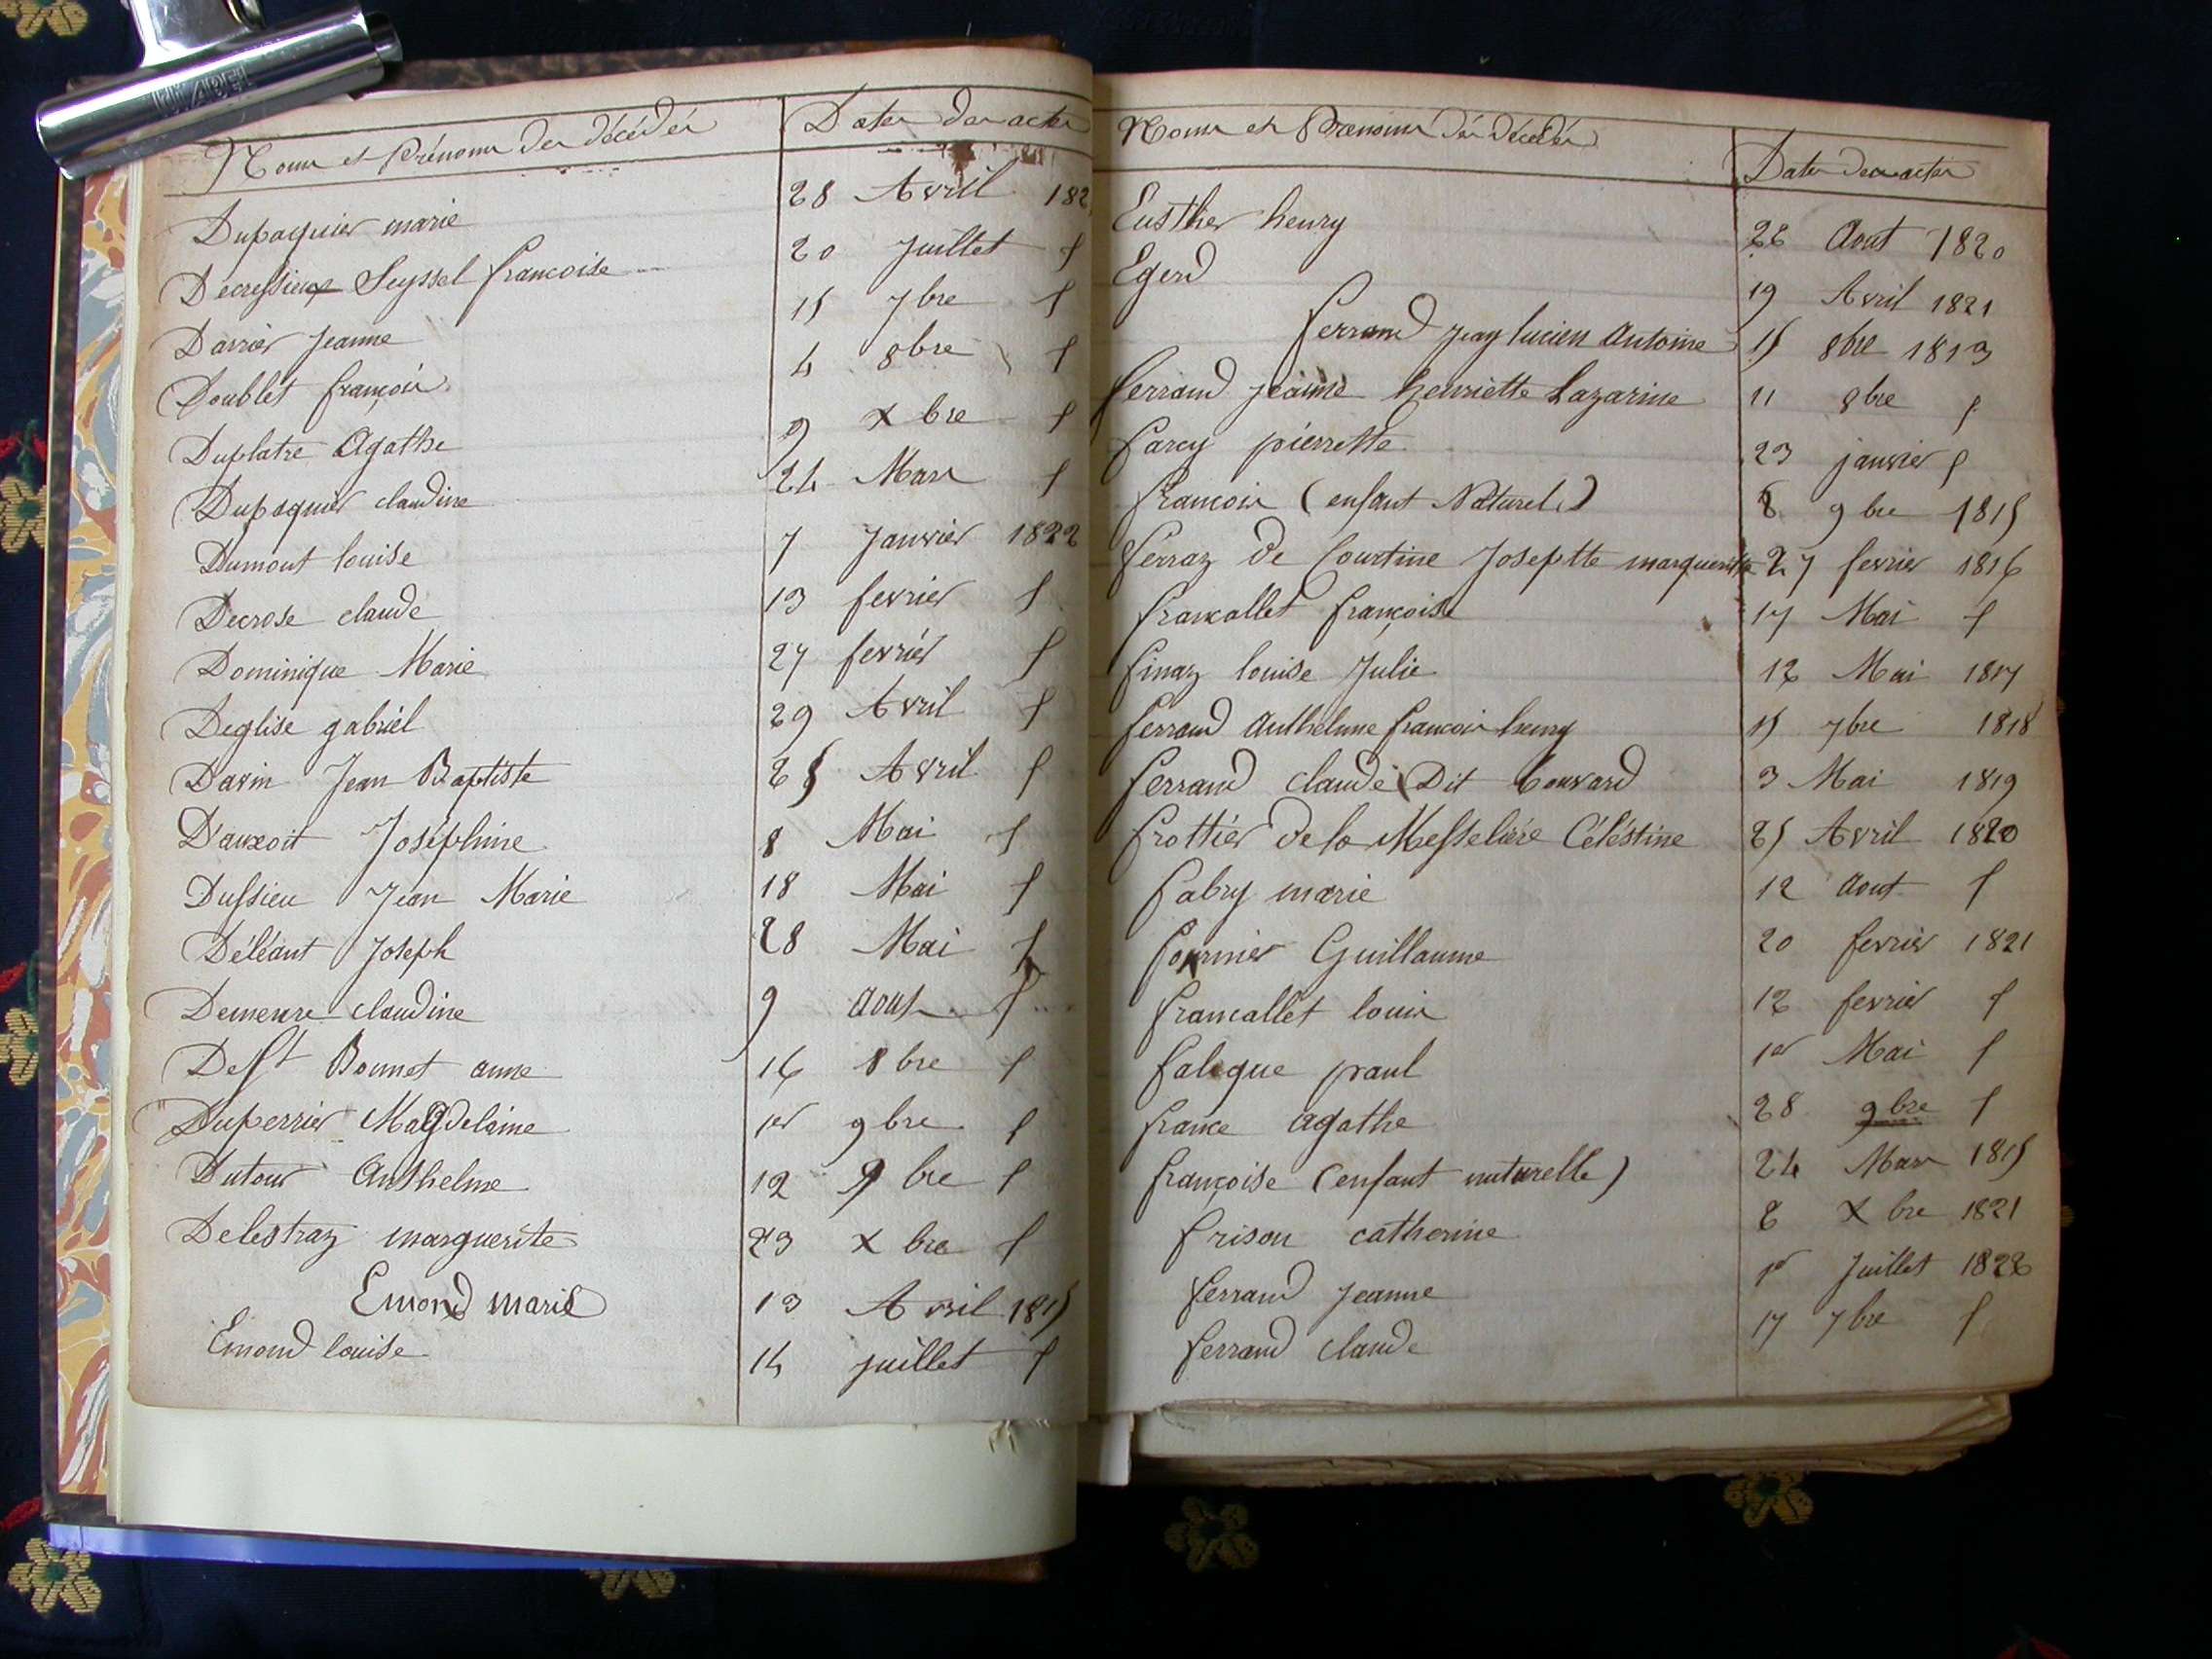 Noms et Prénoms des décédés Dates des actes
Dupaquier marie 28 Avril 182
Decressieux Seyssel francoise 20 Juillet f
Darrier Jeanne 15 7bre f
Doublet françois 4 8bre f
Duplatre Agathe 9 Xbre f
Dupaquier claudine 24 Mars f
Dumont louise 7 Janvier 1822
Decrose claude 13 fevrier f
Dominique Marie 27 fevrier f
Deglise gabriel 29 Avril f
Davin Jean Baptiste 25 Avril f
D'auxoit Joséphine 8 Mai f
Dussieu Jean Marie 18 Mai f
Déléant Joseph 28 Mai f
Demeure claudine 9 Aout f
De St Bonnet anne 16 8bre f
Duperrier Magdelaine 1er 9bre f
Dutour Anthelme 12 9bre f
Delestraz marguerite 23 Xbre f
Emond marie 13 Avril 1815
Emond louise 14 juillet f
Noms et Prenoms des décédés Dates des actes
Eusther henry 22 Aout 1820
Egerd 19 Avril 1821
ferrand Jean lucien Antoine 15 8bre 1813
ferrand jeanne henriette Lazarine 11 8bre f
farcy pierrette 23 janvier f
francois (enfant Naturel) 8 9bre 1815
ferraz de Courtine Josephte marguerite 27 fevrier 1816
francallet françoise 17 Mai f
finaz louise Julie 12 Mai 1817
ferrand Anthelme francois henry 15 7bre 1818
ferrand claude Dit bouvard 3 Mai 1819
frottier de la Messeliere Céléstine 25 Avril 1820
fabry marie 12 Aout f
fournier Guillaume 20 fevrier 1821
francallet louis 12 fevrier f
falcque paul 1er Mai f
france agathe 28 9bre f
françoise (enfant naturelle) 24 Mars 1815
frison catherine 2 Xbre 1821
ferrand Jeanne 1er Juillet 1822
ferrand claude 17 7bre f